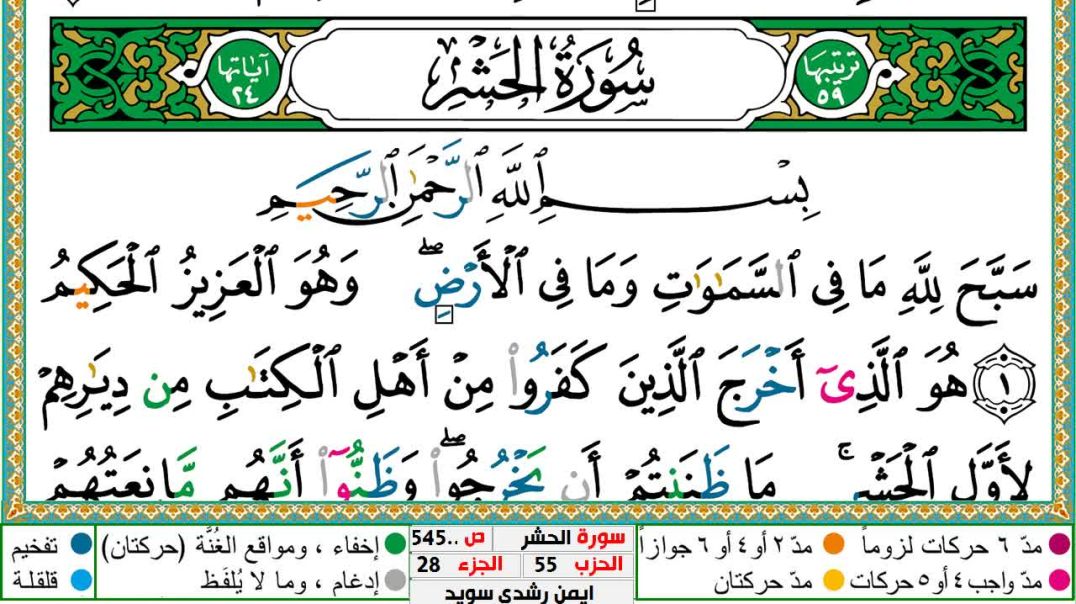 ترتيبها ٥٩
سُورَةُ الحَشْرِ
آياتها ٢٤
بِسْمِ ٱللَّهِ ٱلرَّحْمَٰنِ ٱلرَّحِيمِ
سَبَّحَ لِلَّهِ مَا فِى ٱلسَّمَٰوَٰتِ وَمَا فِى ٱلْأَرْضِۖ وَهُوَ ٱلْعَزِيزُ ٱلْحَكِيمُ
١ هُوَ ٱلَّذِىٓ أَخْرَجَ ٱلَّذِينَ كَفَرُوا۟ مِنْ أَهْلِ ٱلْكِتَٰبِ مِن دِيَٰرِهِمْ
لِأَوَّلِ ٱلْحَشْرِۚ مَا ظَنَنتُمْ أَن يَخْرُجُوا۟ۖ وَظَنُّوٓا۟ أَنَّهُم مَّانِعَتُهُمْ
مدّ ٦ حركات لزوماً
مدّ ٢ أو ٤ أو ٦ جوازاً
مدّ واجب ٤ أو ٥ حركات
مدّ حركتان
سورة الحشر ص ..545
الحزب 55 الجزء 28
ايمن رشدي سويد
إخفاء ، ومواقع الغُنَّة (حركتان)
تفخيم
إدغام ، وما لا يُلفَظ
قلقلة